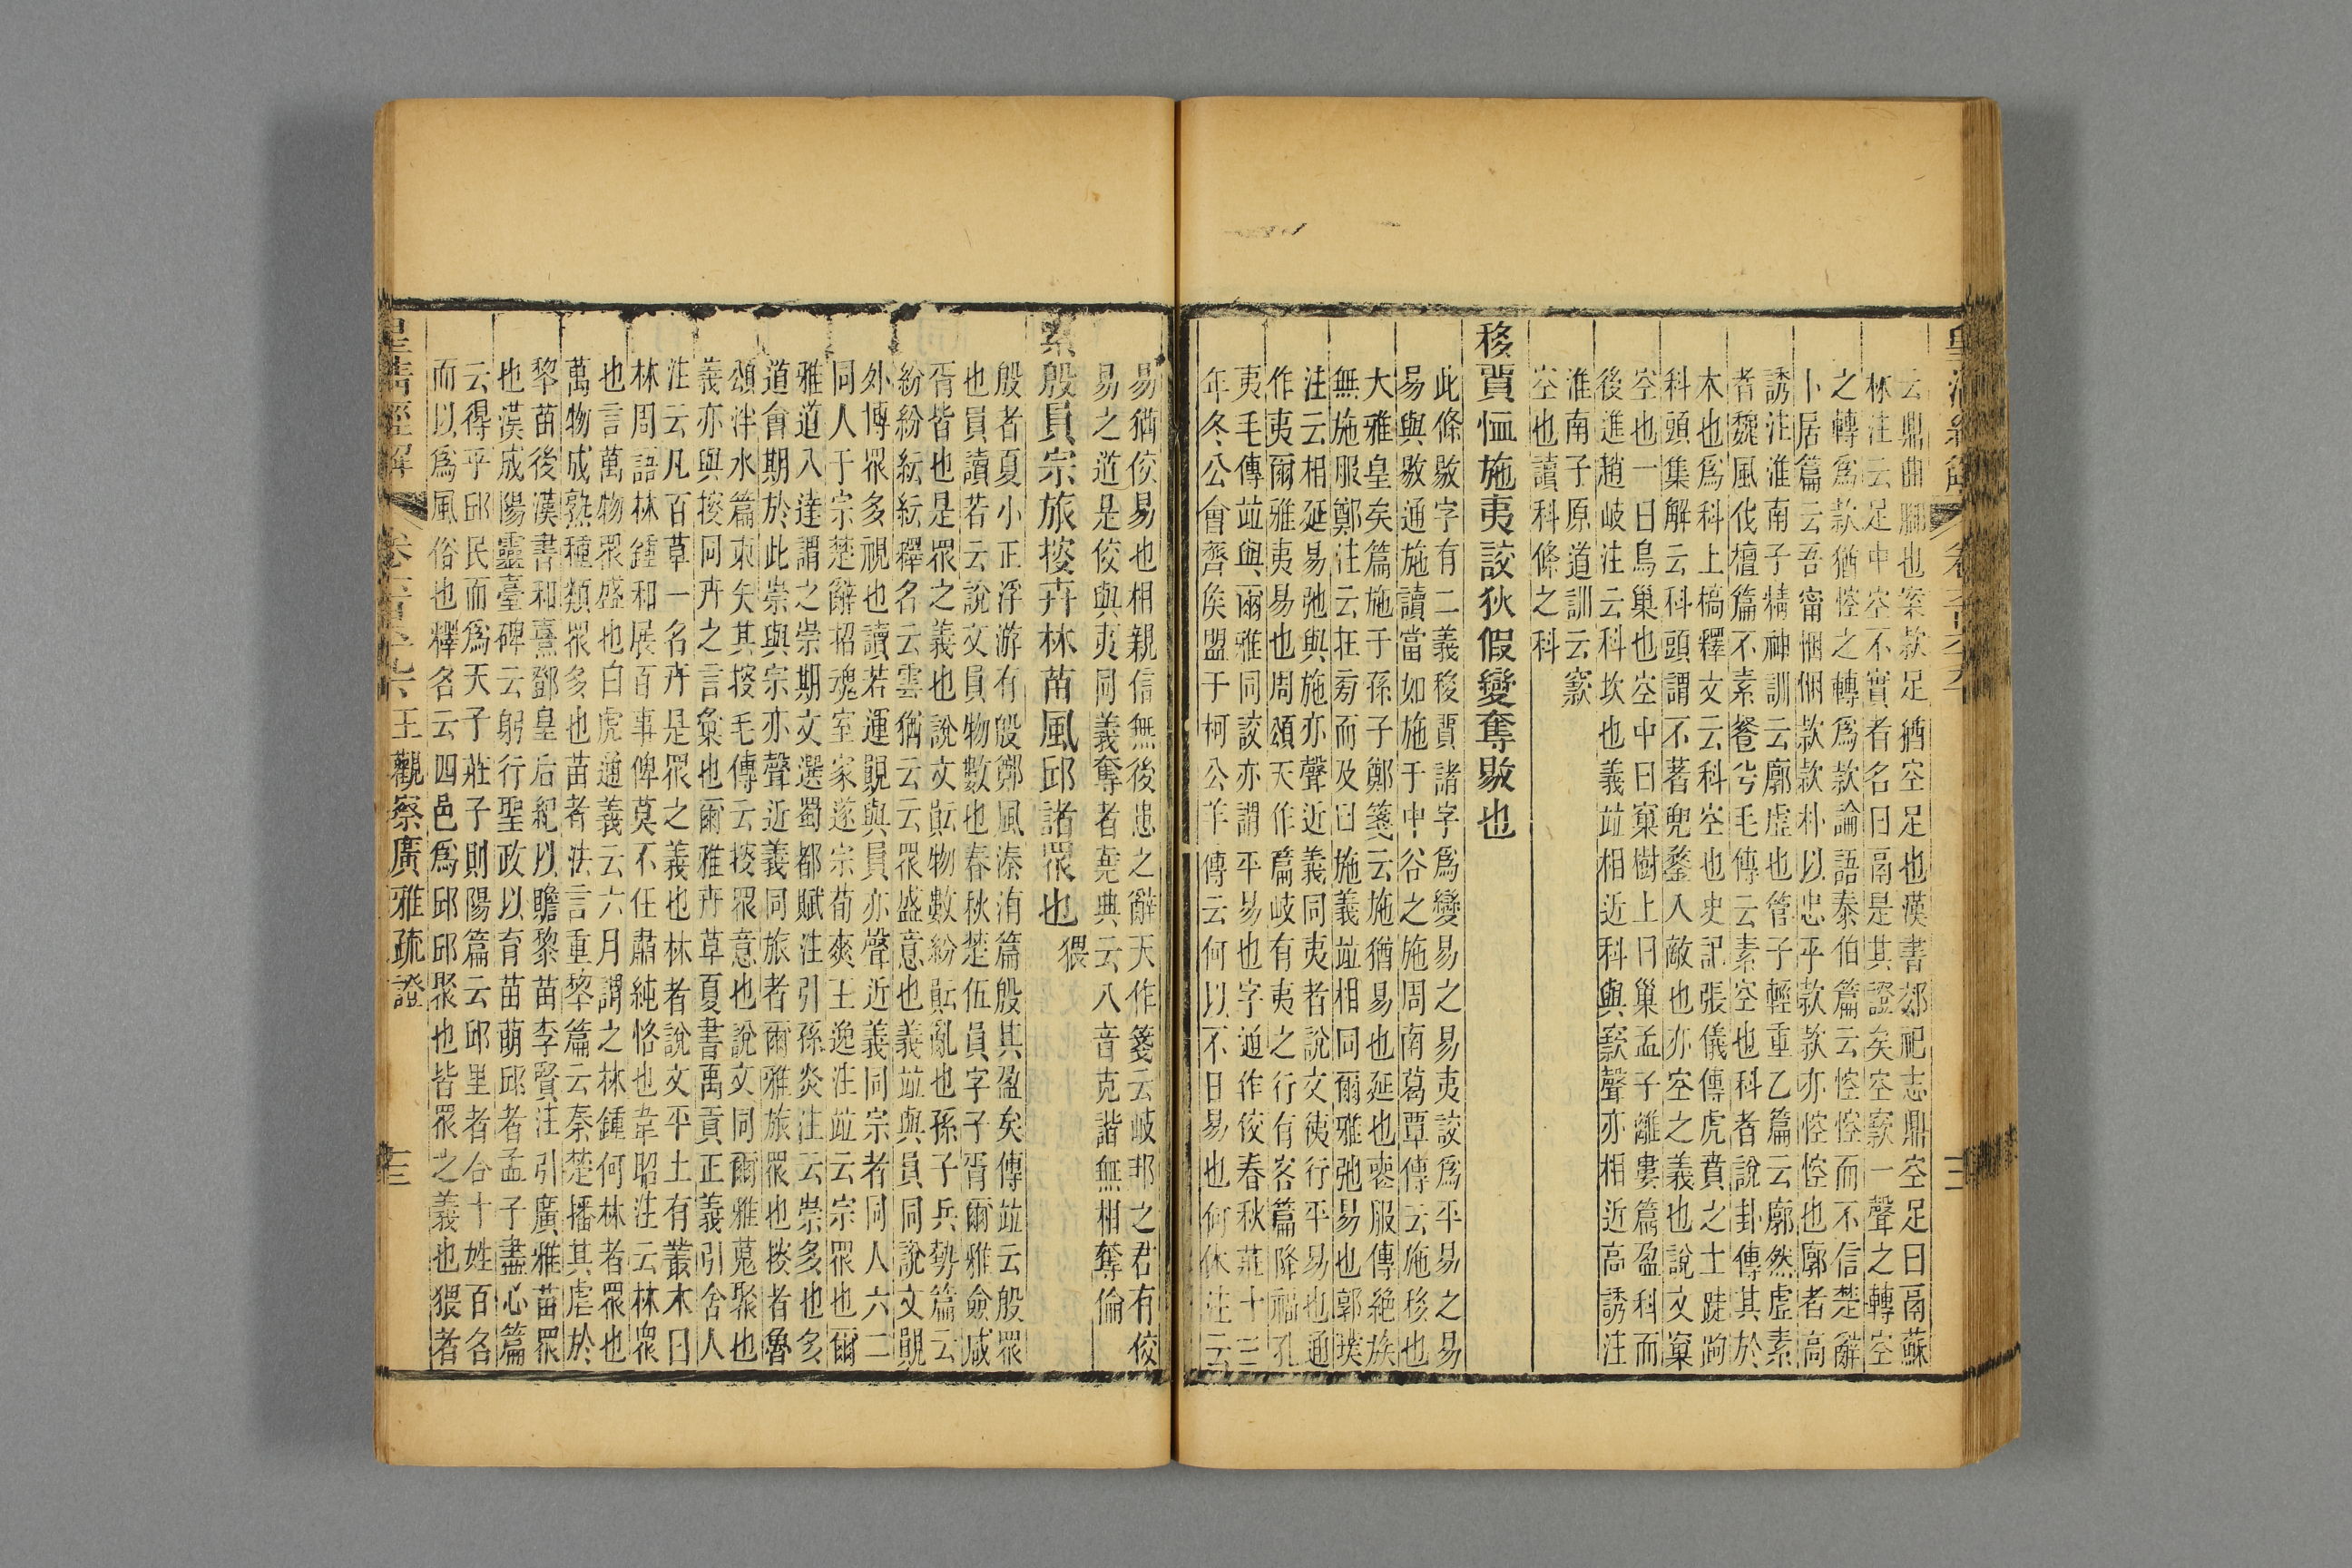 云鼎曲腳也案款足猶空足也漢書郊祀志鼎空足曰鬲蘇
林注云足中空不實者名曰鬲是其證矣空窾一聲之轉空
之轉爲款猶悾之轉爲款論語泰伯篇云悾悾而不信楚辭
卜居篇云吾甯悃悃款款朴以忠乎款款亦悾悾也廓者高
誘注淮南子精神訓云廓虛也管子輕重乙篇云廓然虛素
者魏風伐檀篇不素餐兮毛傳云素空也科者說卦傳其於
木也爲科上槁釋文云科空也史記張儀傳虎賁之士跿跔
科頭集解云科頭謂不著兜鍪入敵也亦空之義也說文窠
空也一曰鳥巢也空中曰窠樹上曰巢孟子離婁篇盈科而
後進趙岐注云科坎也義竝相近科與窾聲亦相近高誘注
淮南子原道訓云窾
空也讀科條之科
移貿恤施夷詨狄假變奪敡也
此條敡字有二義移貿諸字爲變易之易夷詨爲平易之易
易與敡通施讀當如施于中谷之施周南葛覃傳云施移也
大雅皇矣篇施于孫子鄭箋云施猶易也延也喪服傳絶族
無施服鄭注云在旁而及曰施義竝相同爾雅弛易也郭璞
注云相延易弛與施亦聲近義同夷者說文侇行平易也通
作夷爾雅夷易也周頌天作篇岐有夷之行有客篇降福孔
夷毛傳竝與爾雅同詨亦謂平易也字通作佼春秋莊十三
年冬公會齊矦盟于柯公羊傳云何以不日易也何休注云
易猶佼易也相親信無後患之辭天作箋云岐邦之君有佼
易之道是佼與夷同義奪者堯典云八音克諧無相奪倫
殷員宗旅揬卉林苗風邱諸眾也 猥
殷者夏小正浮游有殷鄭風溱洧篇殷其盈矣傳竝云殷眾
也員讀若云說文員物數也春秋楚伍員字子胥爾雅僉咸
胥皆也是眾之義也說文䝈物數紛䝈亂也孫子兵勢篇云
紛紛紜紜釋名云雲猶云云眾盛意也義竝與員同說文覞
外博眾多視也讀若運覞與員亦聲近義同宗者同人六二
同人于宗楚辭招魂室家遂宗荀爽王逸注竝云宗眾也爾
雅道八達謂之崇期文選蜀都賦注引孫炎注云崇多也多
道會期於此崇與宗亦聲近義同旅者爾雅旅眾也揬者魯
頌泮水篇束矢其搜毛傳云揬眾意也說文同爾雅蒐聚也
義亦與揬同卉之言彙也爾雅卉草夏書禹貢正義引舍人
注云凡百草一名卉是眾之義也林者說文平土有叢木曰
林周語林鍾和展百事俾莫不任肅純恪也韋昭注云林眾
也言萬物眾盛也白虎通義云六月謂之林鍾何林者眾也
萬物成熟種類眾多也苗者法言重黎篇云秦楚播其虐於
黎苗後漢書和熹鄧皇后紀以贍黎苗李賢注引廣雅苗眾
也漢成陽靈臺碑云躬行聖政以育苗萌邱者孟子盡心篇
云得乎邱民而爲天子莊子則陽篇云邱里者合十姓百名
而以爲風俗也釋名云四邑爲邱邱聚也皆眾之義也猥者
皇清經解 王觀察廣雅疏證